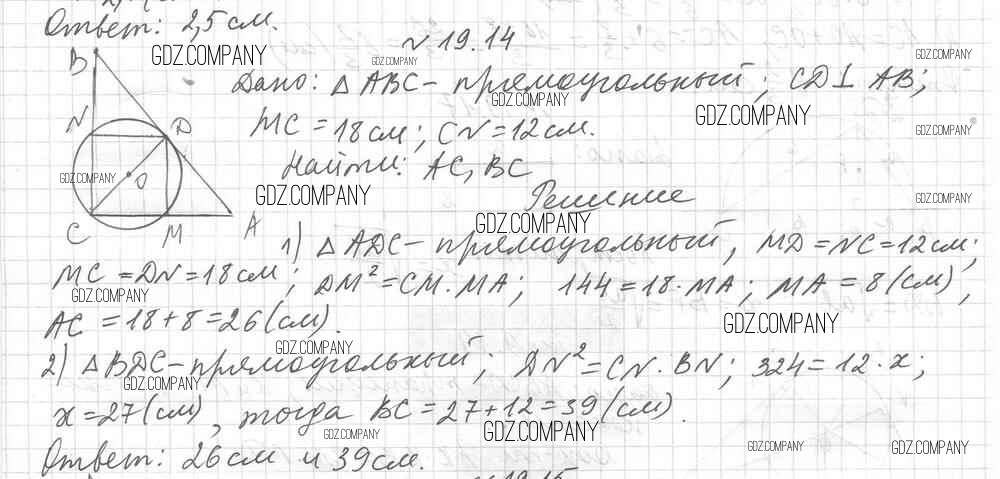 Ответ: 2,5 см.
№ 19.14
GDZ.COMPANY
GDZ.COMPANY
GDZ.COMPANY
B
Дано: △ ABC – прямоугольный; CD ⊥ AB;
GDZ.COMPANY
GDZ.COMPANY
N D
MC = 18 см; CN = 12 см.
GDZ.COMPANY
Найти: AC, BC
GDZ.COMPANY
O
GDZ.COMPANY
Решение
GDZ.COMPANY
GDZ.COMPANY
C M A
1) △ ADC – прямоугольный, MD = NC = 12 см;
MC = DN = 18 см; DM² = CM · MA; 144 = 18 · MA; MA = 8 (см),
GDZ.COMPANY
AC = 18 + 8 = 26 (см).
GDZ.COMPANY
GDZ.COMPANY
2) △ BDC – прямоугольный; DN² = CN · BN; 324 = 12 · x;
GDZ.COMPANY
x = 27 (см), тогда BC = 27 + 12 = 39 (см).
GDZ.COMPANY
GDZ.COMPANY
GDZ.COMPANY
GDZ.COMPANY
Ответ: 26 см и 39 см.